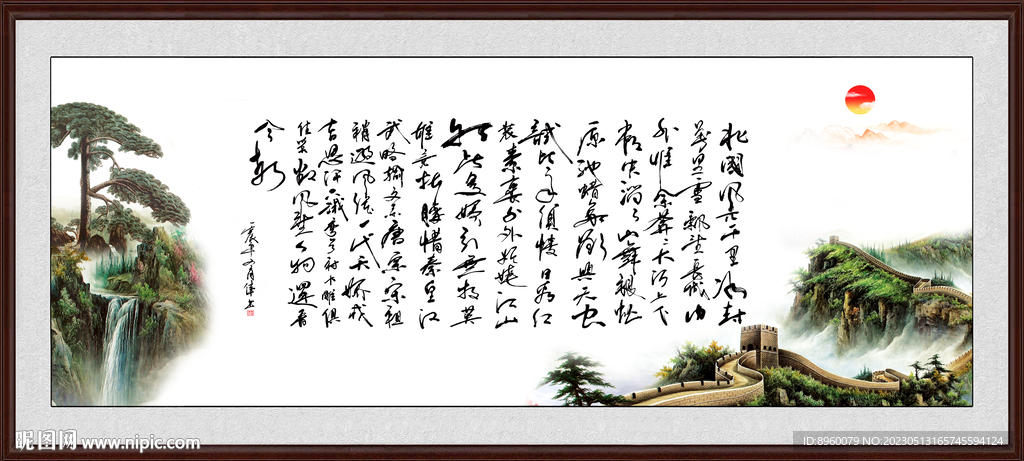 北國風光千里冰封
萬里雪飄望長城内
外惟余莽莽大河上下
頓失滔滔山舞銀蛇
原馳蠟象欲與天公
試比高須晴日看紅
裝素裹分外妖嬈江山
如此多嬌引無數英
雄競折腰惜秦皇汉
武略輸文采唐宗宋祖
稍遜風騷一代天驕成
吉思汗只識彎弓射大雕俱
往矣數風流人物還看
今朝
昵图网 www.nipic.com
ID:8960079 NO:20230513165745594124